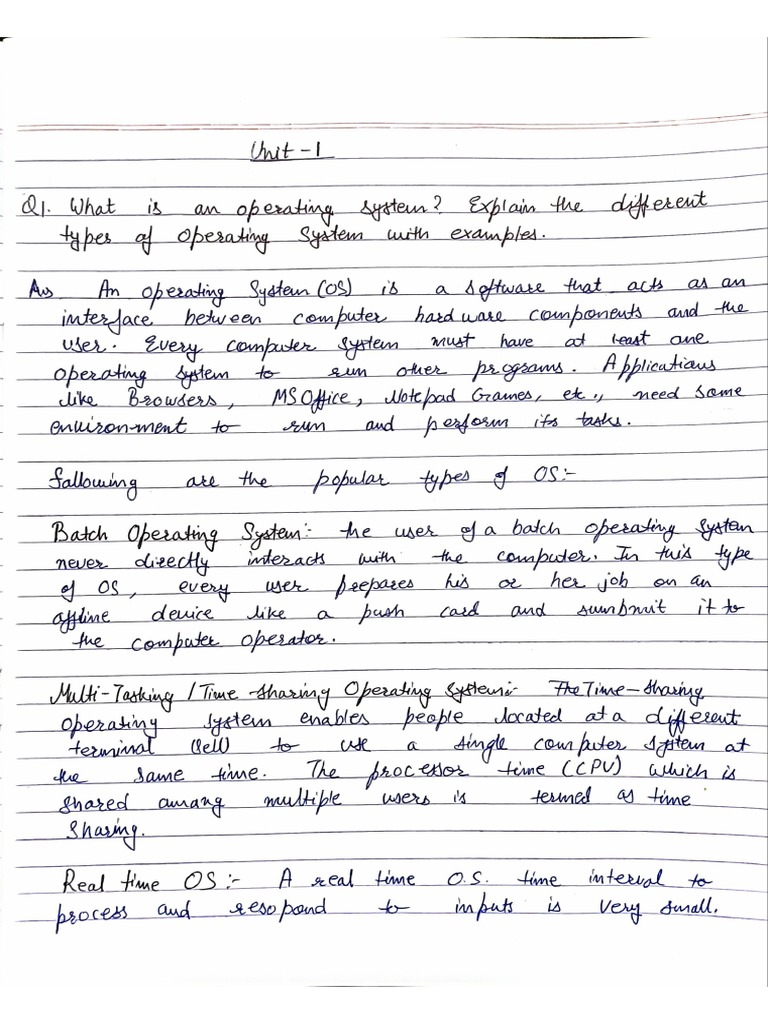 Unit - 1
Q1. What is an operating system? Explain the different
types of Operating System with examples.
Ans An Operating System (OS) is a software that acts as an
interface between computer hardware components and the
user. Every computer system must have at least one
operating system to run other programs. Applications
like Browsers, MS Office, Notepad Games, etc., need some
environ-ment to run and perform its tasks.
Following are the popular types of OS:-
Batch Operating System:- the user of a batch operating system
never directly interacts with the computer. In this type
of OS, every user prepares his or her job on an
offline device like a push card and sumbmit it to
the computer operator.
Multi-Tasking / Time sharing Operating System:- The Time-sharing
operating system enables people located at a different
terminal to use a single computer system at
the same time. The processor time (CPU) which is
shared among multiple users is termed as time
sharing.
Real time OS:- A real time O.S. time interval to
process and resopond to inputs is very small.